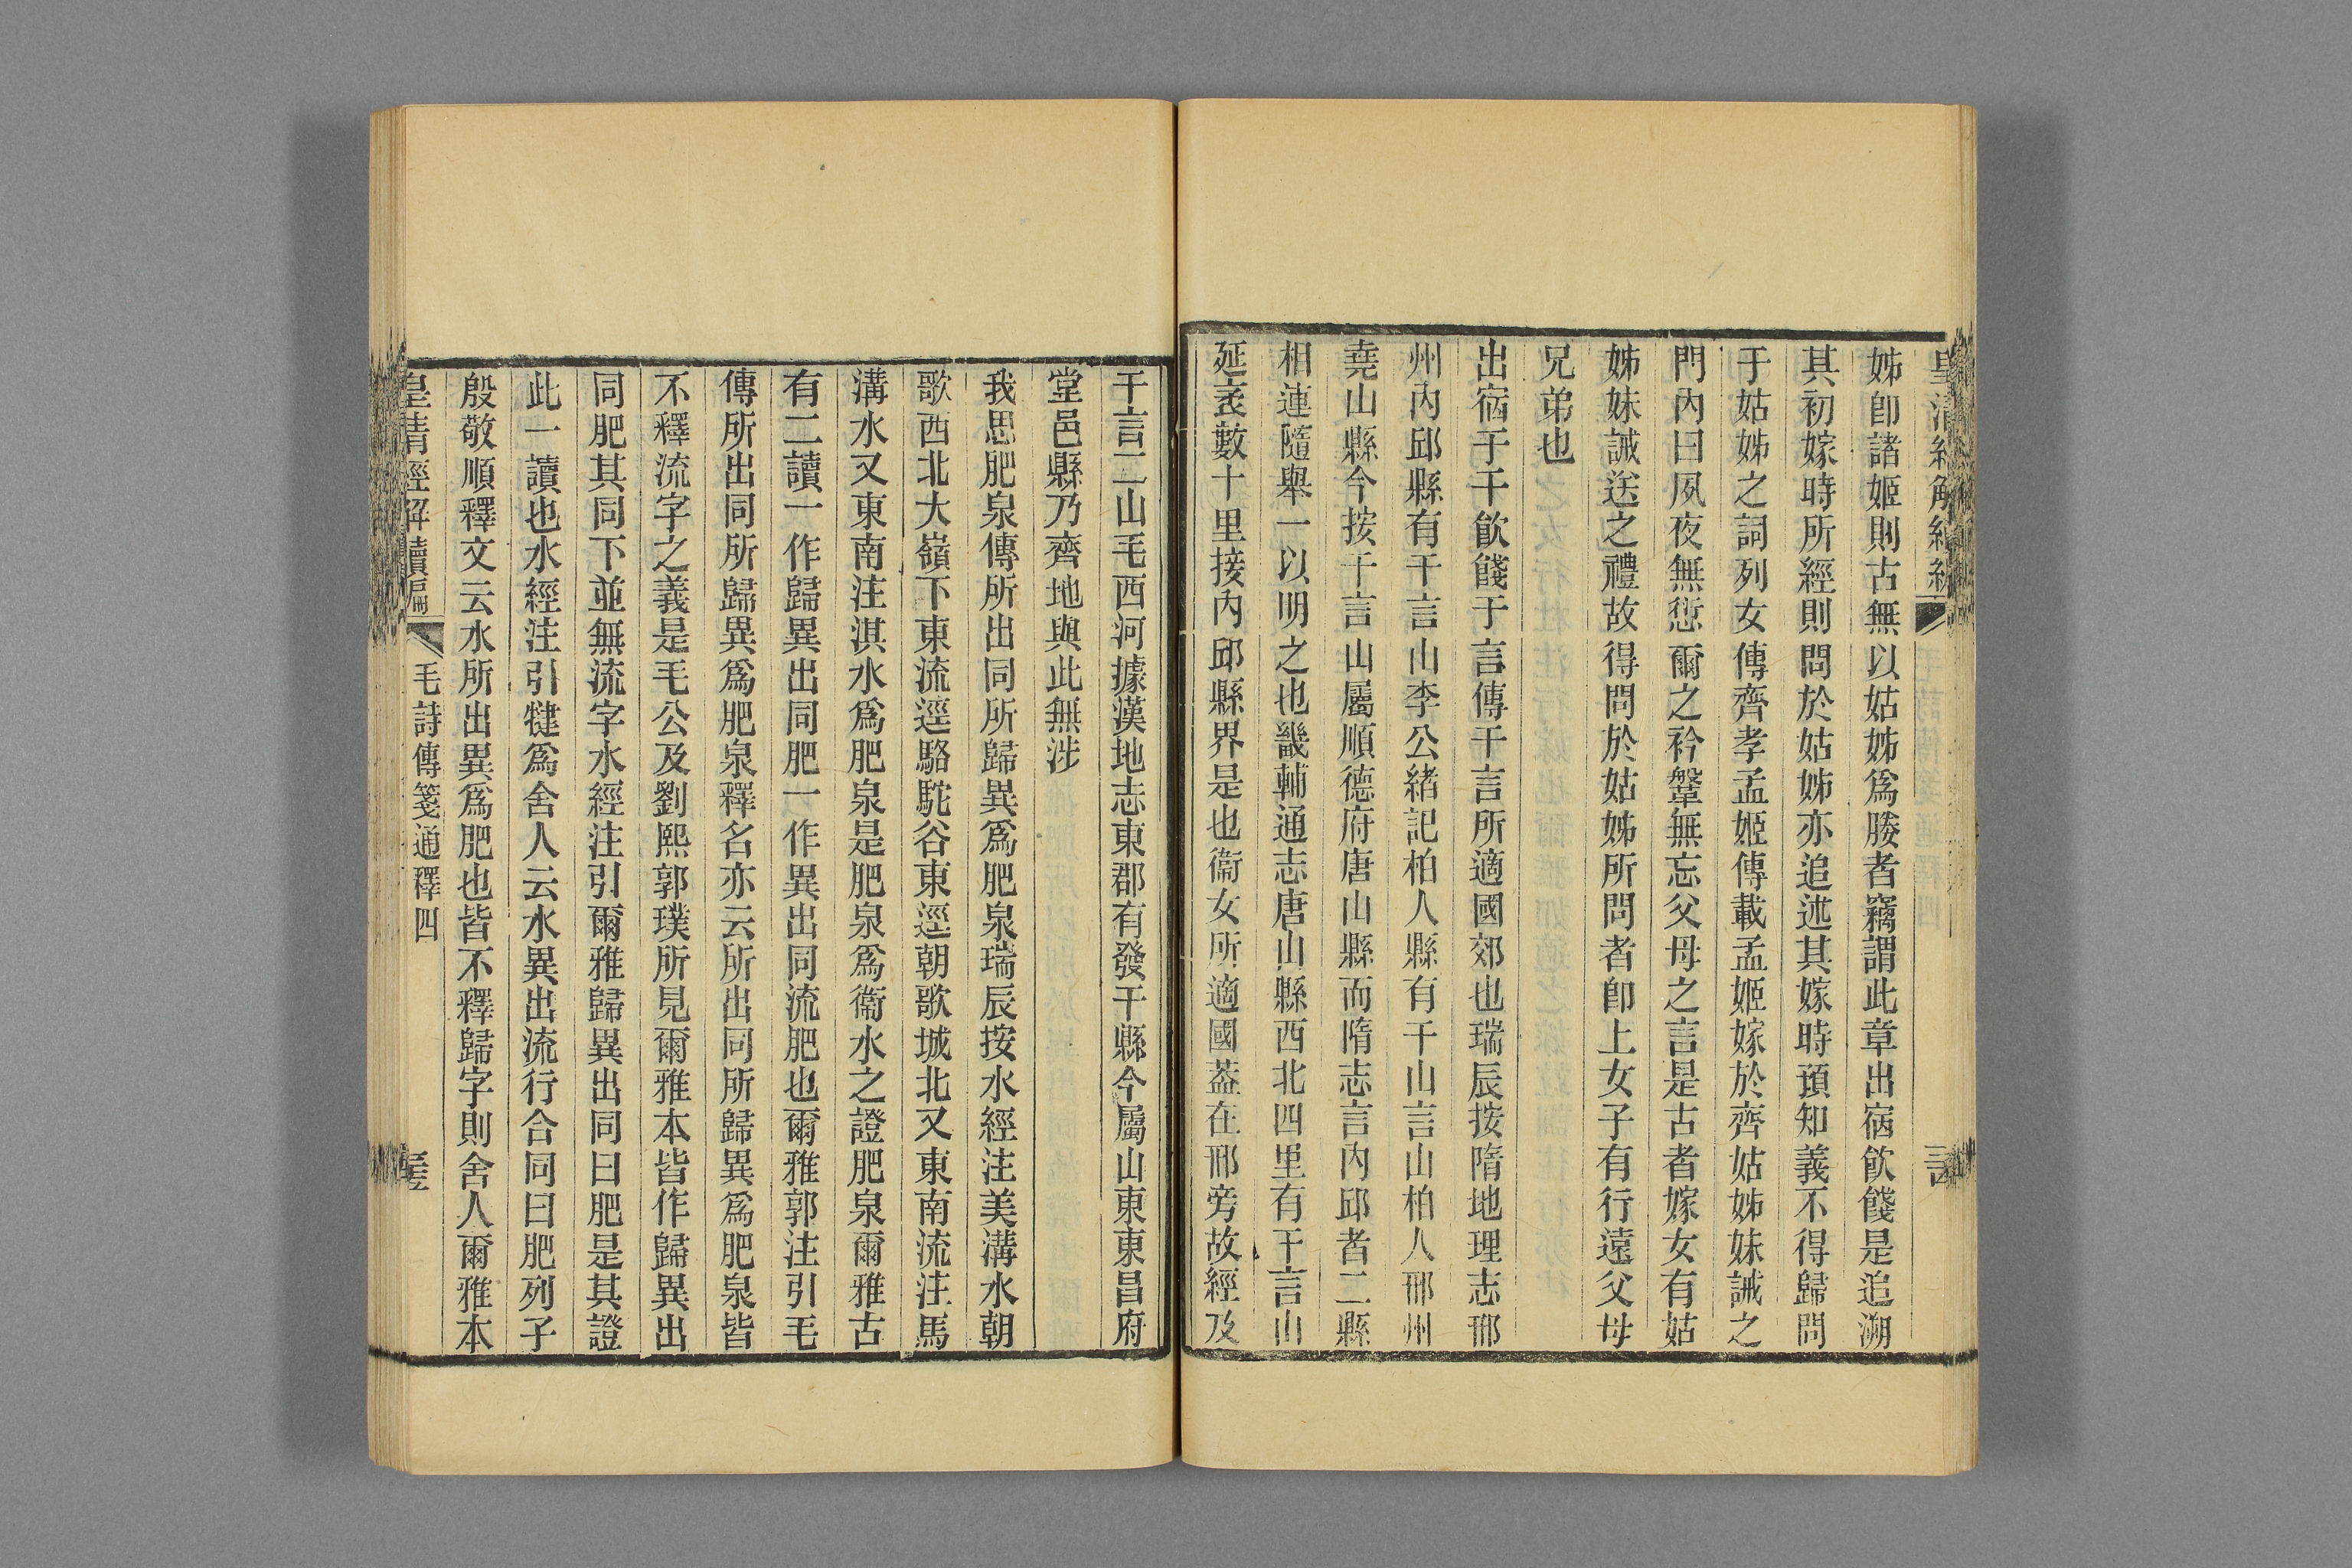 姊卽諸姬則古無以姑姊爲媵者竊謂此章出宿飮餞是追溯
其初嫁時所經則問於姑姊亦追述其嫁時預知義不得歸問
于姑姊之詞列女傳齊孝孟姬傳載孟姬嫁於齊姑姊妹誡之
門內曰夙夜無愆爾之衿鞶無忘父母之言是古者嫁女有姑
姊妹誡送之禮故得問於姑姊所問者卽上女子有行遠父母
兄弟也
出宿于干飮餞于言傳干言所適國郊也瑞辰按隋地理志邢
州內邱縣有干言山李公緒記柏人縣有干山言山柏人邢州
堯山縣今按干言山屬順德府唐山縣而隋志言內邱者二縣
相連隨舉一以明之也畿輔通志唐山縣西北四里有干言山
延袤數十里接內邱縣界是也衞女所適國葢在邢旁故經及
干言二山毛西河據漢地志東郡有發干縣今屬山東東昌府
堂邑縣乃齊地與此無涉
我思肥泉傳所出同所歸異爲肥泉瑞辰按水經注美溝水朝
歌西北大嶺下東流逕駱駝谷東逕朝歌城北又東南流注馬
溝水又東南注淇水爲肥泉是肥泉爲衞水之證肥泉爾雅古
有二讀一作歸異出同肥一作異出同流肥也爾雅郭注引毛
傳所出同所歸異爲肥泉釋名亦云所出同所歸異爲肥泉皆
不釋流字之義是毛公及劉熙郭璞所見爾雅本皆作歸異出
同肥其同下並無流字水經注引爾雅歸異出同曰肥是其證
此一讀也水經注引犍爲舍人云水異出流行合同曰肥列子
殷敬順釋文云水所出異爲肥也皆不釋歸字則舍人爾雅本
皇清經解續編
毛詩傳箋通釋四